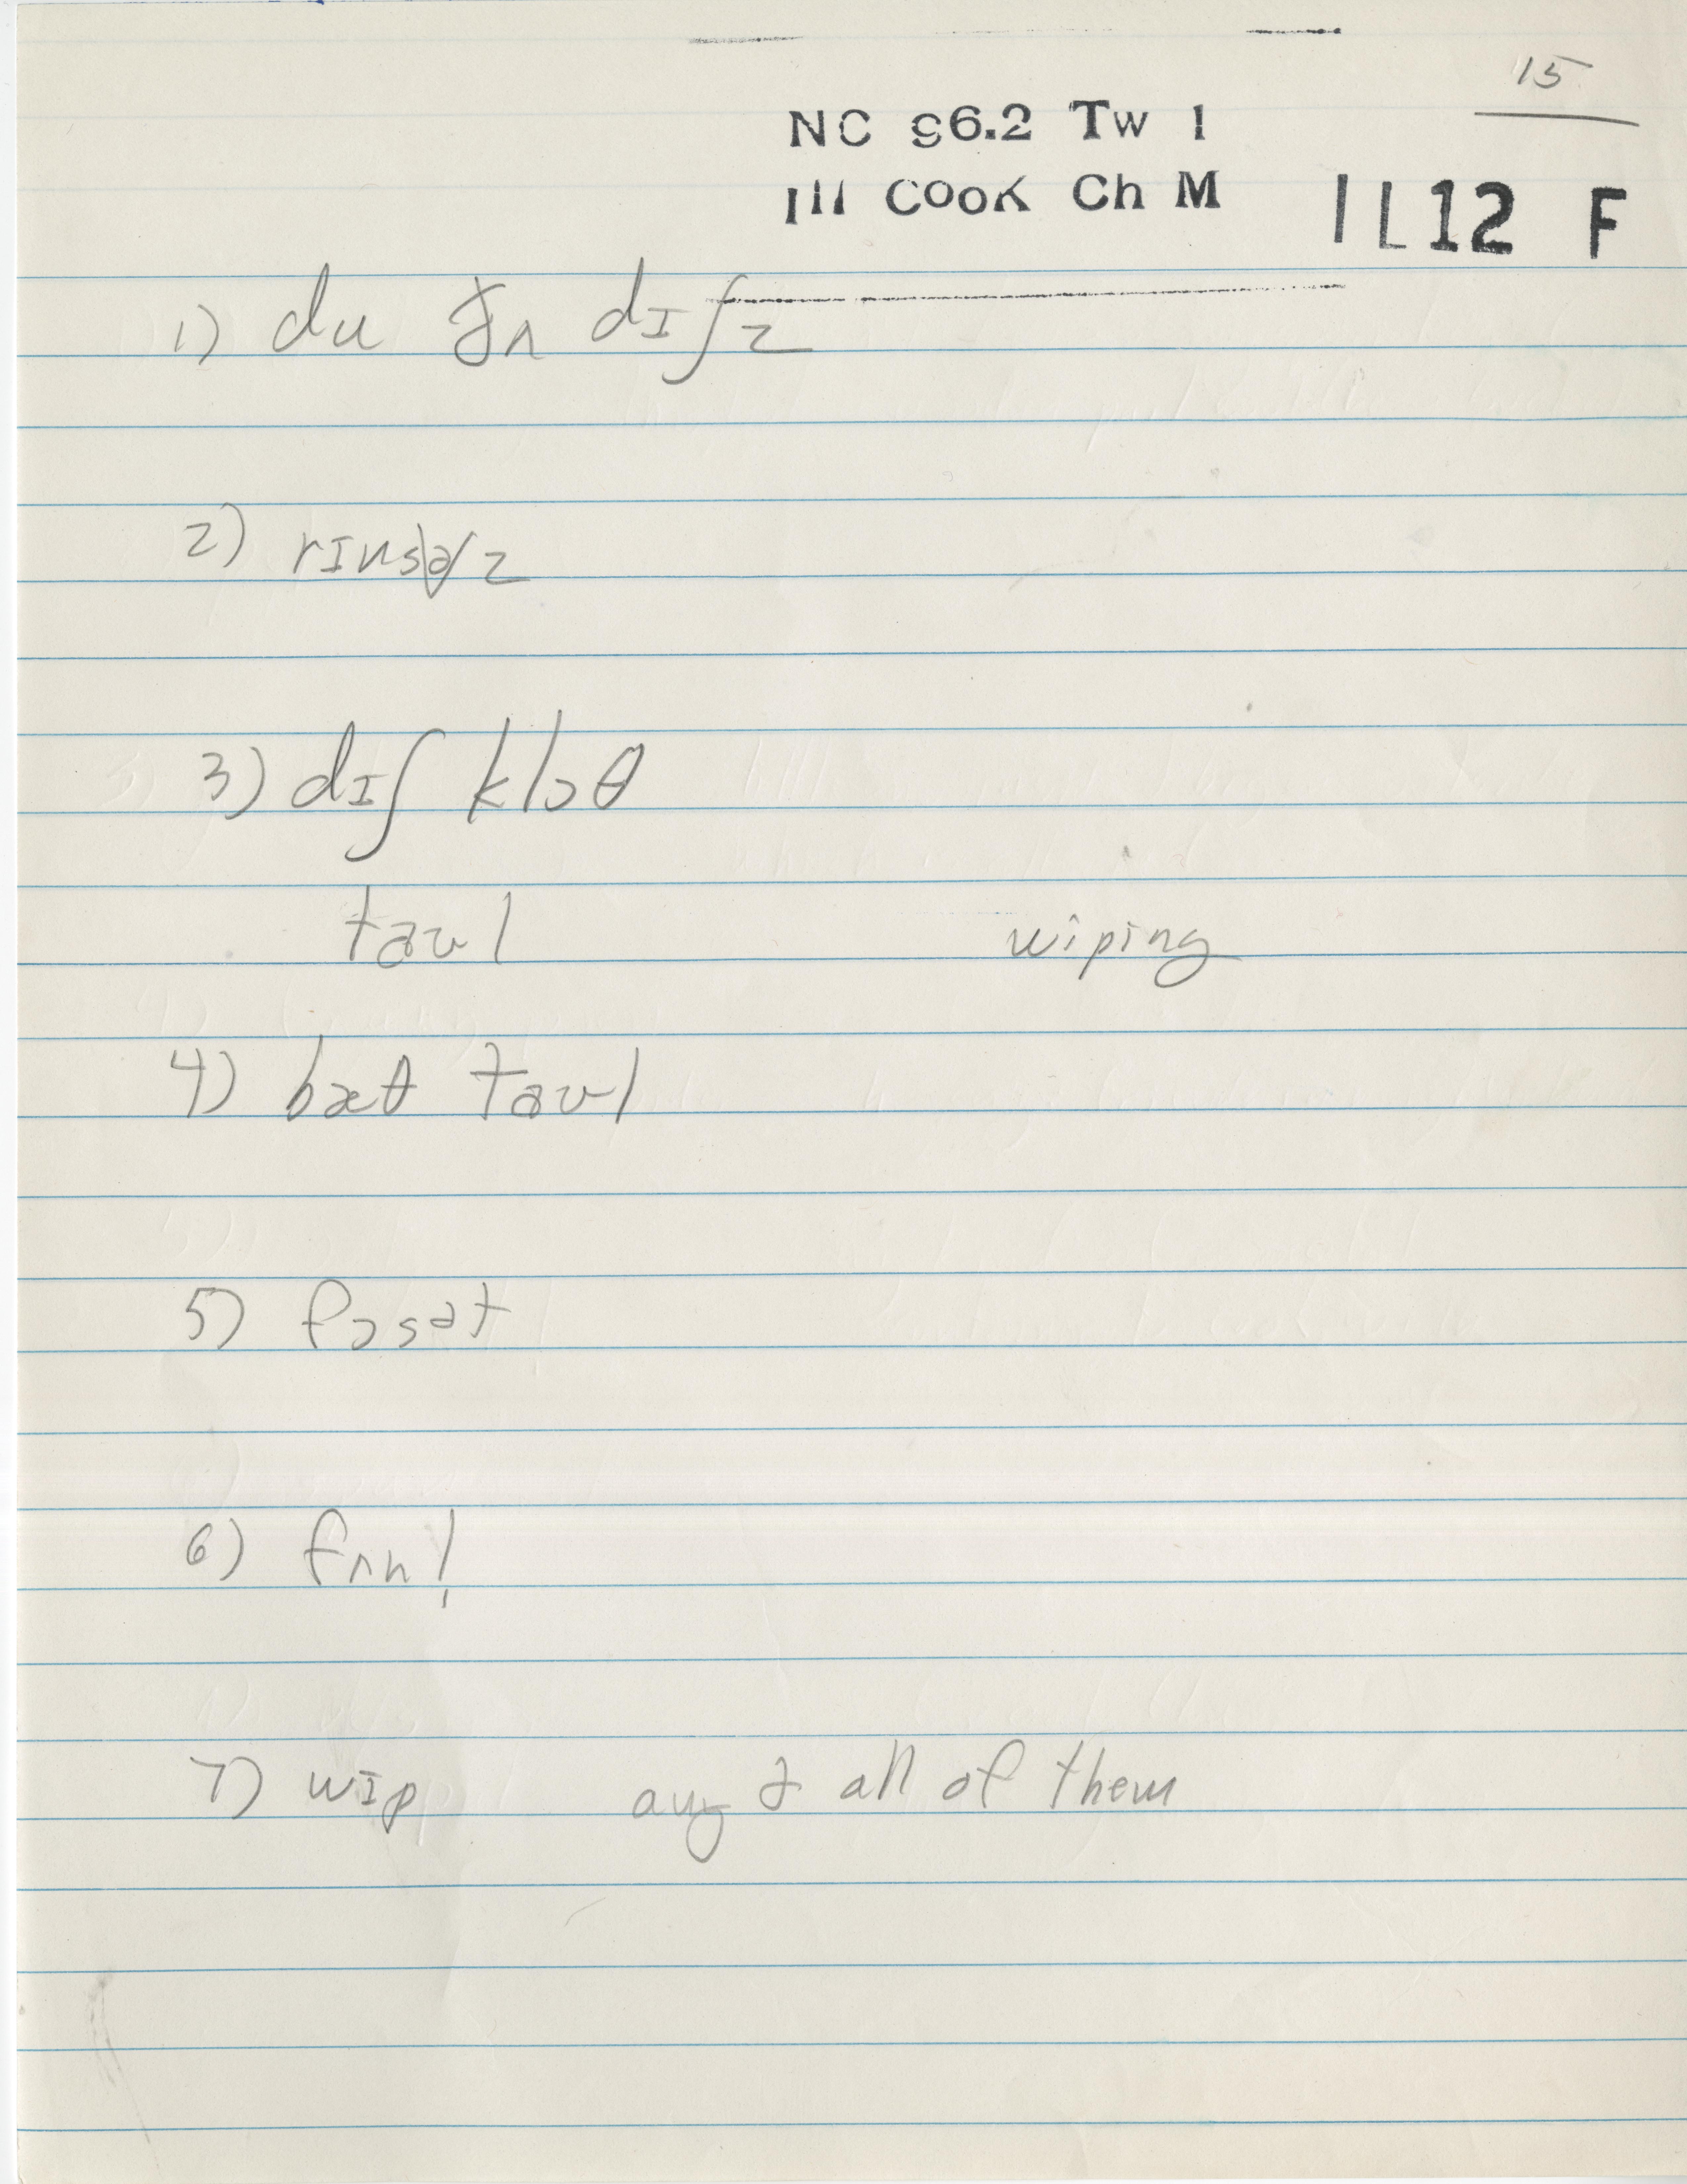 15
NC 96.2 Tw 1
Ill Cook Ch M IL12 F
1) du ðʌ dɪʃz
2) rɪnsəz
3) dɪʃ klɔθ
taʊl wiping
4) bæθ taʊl
5) fɔsət
6) fʌnl̩
7) wɪp any & all of them